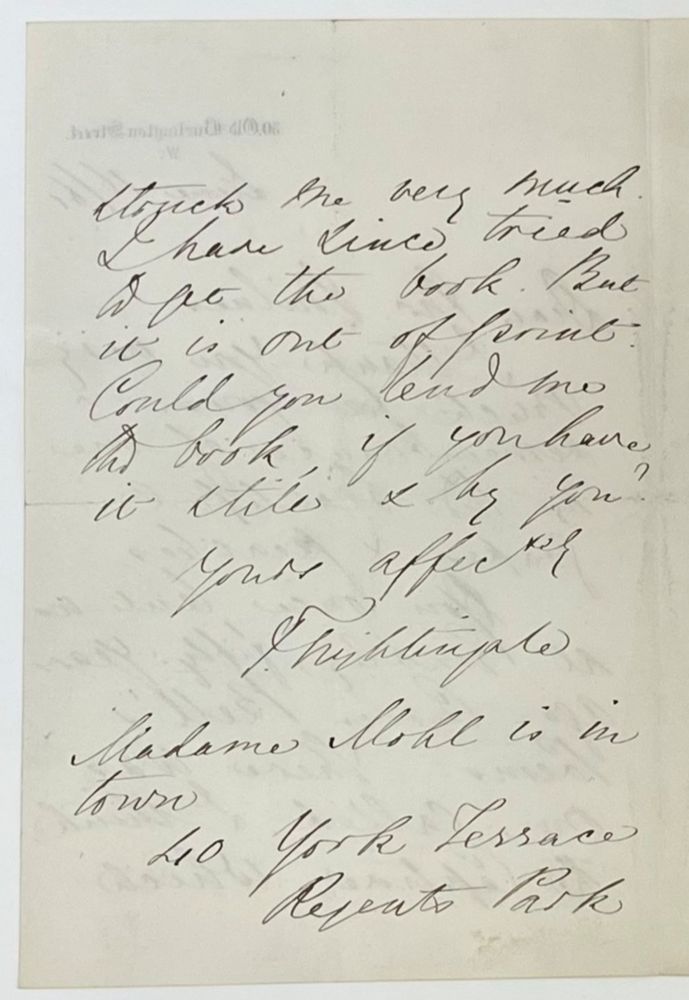 struck me very much.
I have since tried
to get the book. But
it is out of print.
Could you lend me
the book, if you have
it still & by you?
yours affectly
F Nightingale
Madame Mohl is in
town
40 York Terrace
Regents Park